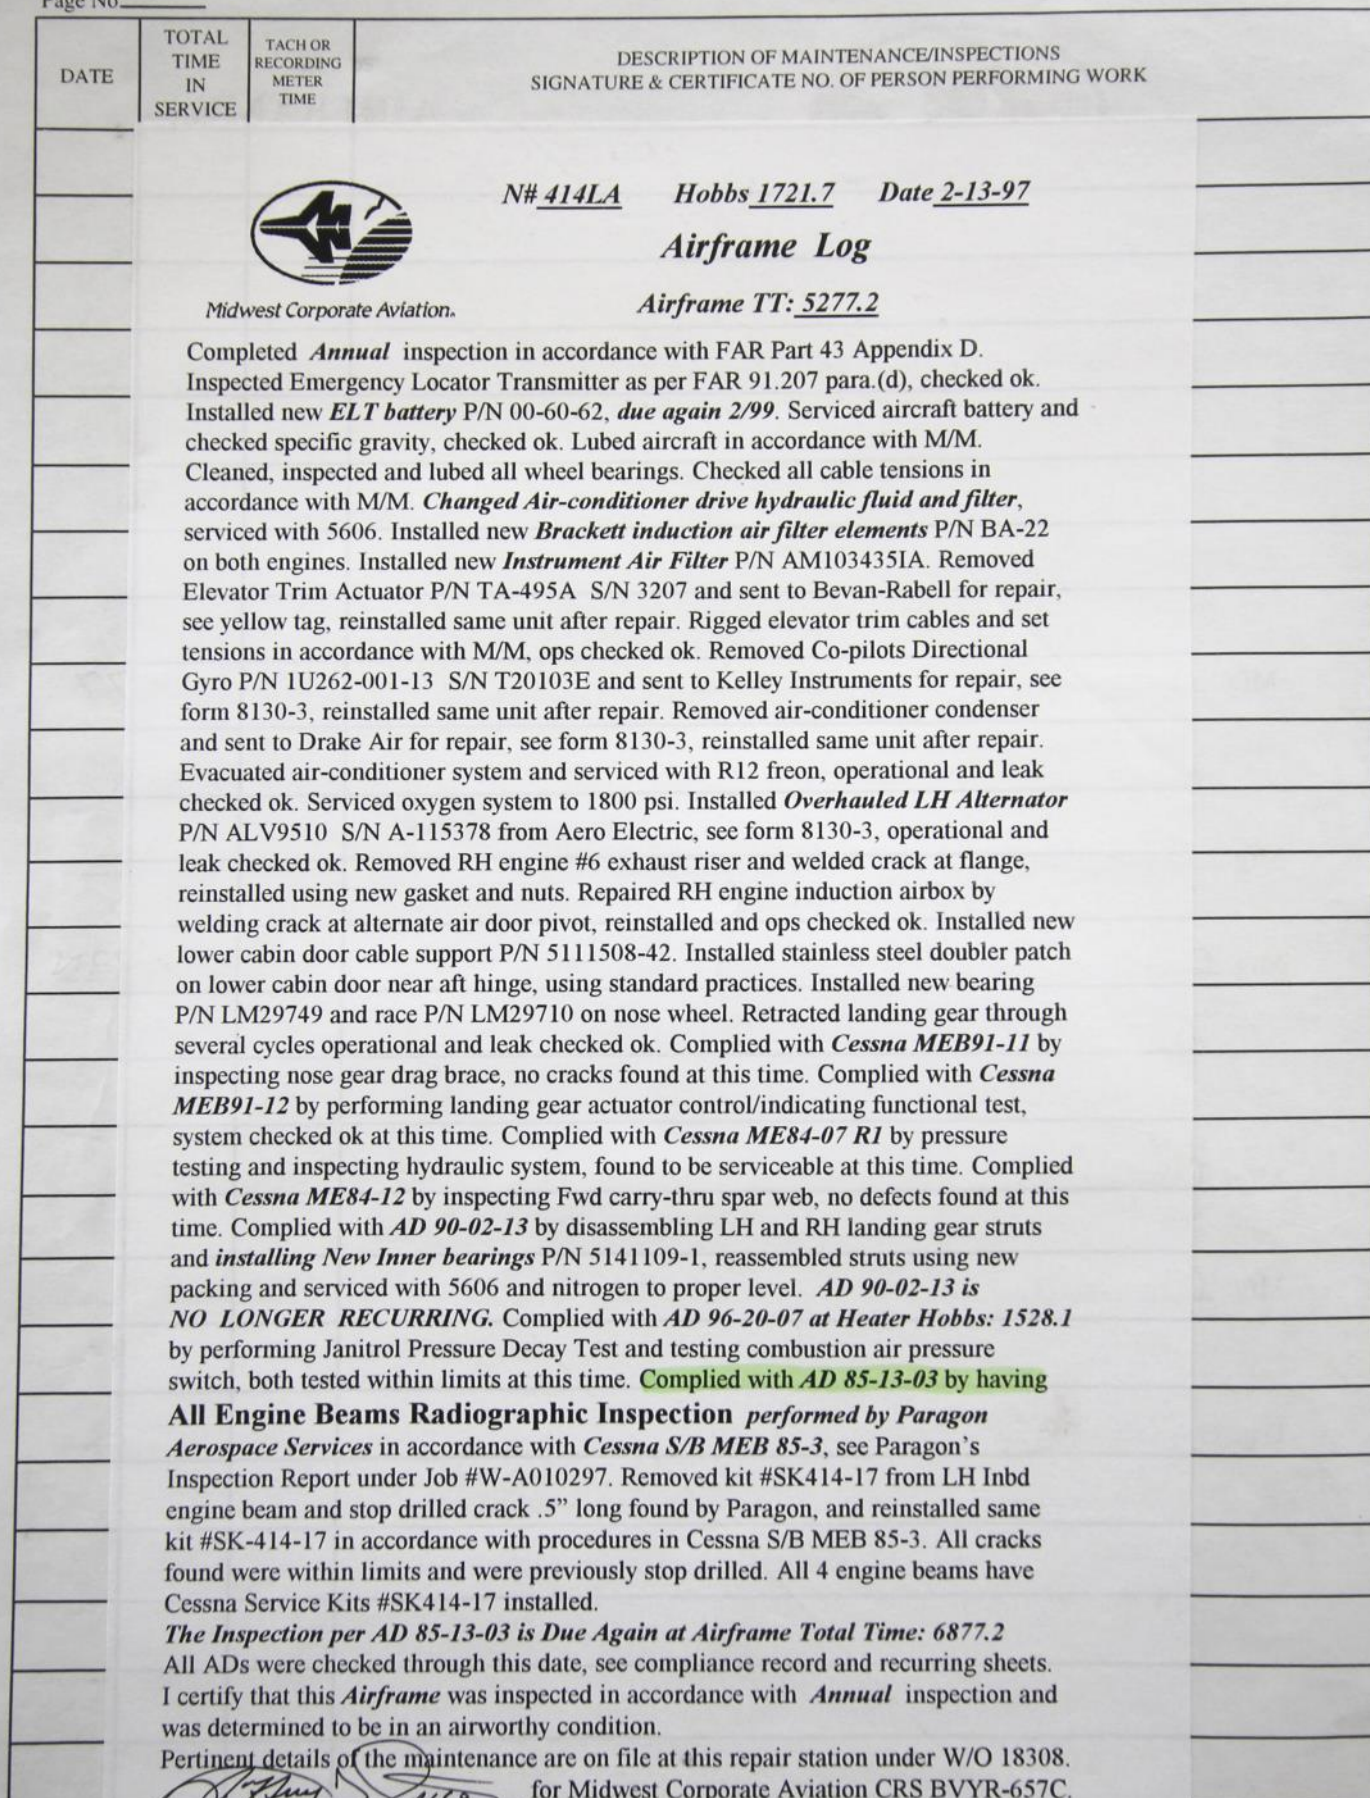 Page No.
DATE
TOTAL
TIME
IN
SERVICE
TACH OR
RECORDING
METER
TIME
DESCRIPTION OF MAINTENANCE/INSPECTIONS
SIGNATURE & CERTIFICATE NO. OF PERSON PERFORMING WORK
N# 414LA Hobbs 1721.7 Date 2-13-97
Airframe Log
Midwest Corporate Aviation.
Airframe TT: 5277.2
Completed Annual inspection in accordance with FAR Part 43 Appendix D.
Inspected Emergency Locator Transmitter as per FAR 91.207 para.(d), checked ok.
Installed new ELT battery P/N 00-60-62, due again 2/99. Serviced aircraft battery and
checked specific gravity, checked ok. Lubed aircraft in accordance with M/M.
Cleaned, inspected and lubed all wheel bearings. Checked all cable tensions in
accordance with M/M. Changed Air-conditioner drive hydraulic fluid and filter,
serviced with 5606. Installed new Brackett induction air filter elements P/N BA-22
on both engines. Installed new Instrument Air Filter P/N AM103435IA. Removed
Elevator Trim Actuator P/N TA-495A S/N 3207 and sent to Bevan-Rabell for repair,
see yellow tag, reinstalled same unit after repair. Rigged elevator trim cables and set
tensions in accordance with M/M, ops checked ok. Removed Co-pilots Directional
Gyro P/N 1U262-001-13 S/N T20103E and sent to Kelley Instruments for repair, see
form 8130-3, reinstalled same unit after repair. Removed air-conditioner condenser
and sent to Drake Air for repair, see form 8130-3, reinstalled same unit after repair.
Evacuated air-conditioner system and serviced with R12 freon, operational and leak
checked ok. Serviced oxygen system to 1800 psi. Installed Overhauled LH Alternator
P/N ALV9510 S/N A-115378 from Aero Electric, see form 8130-3, operational and
leak checked ok. Removed RH engine #6 exhaust riser and welded crack at flange,
reinstalled using new gasket and nuts. Repaired RH engine induction airbox by
welding crack at alternate air door pivot, reinstalled and ops checked ok. Installed new
lower cabin door cable support P/N 5111508-42. Installed stainless steel doubler patch
on lower cabin door near aft hinge, using standard practices. Installed new bearing
P/N LM29749 and race P/N LM29710 on nose wheel. Retracted landing gear through
several cycles operational and leak checked ok. Complied with Cessna MEB91-11 by
inspecting nose gear drag brace, no cracks found at this time. Complied with Cessna
MEB91-12 by performing landing gear actuator control/indicating functional test,
system checked ok at this time. Complied with Cessna ME84-07 R1 by pressure
testing and inspecting hydraulic system, found to be serviceable at this time. Complied
with Cessna ME84-12 by inspecting Fwd carry-thru spar web, no defects found at this
time. Complied with AD 90-02-13 by disassembling LH and RH landing gear struts
and installing New Inner bearings P/N 5141109-1, reassembled struts using new
packing and serviced with 5606 and nitrogen to proper level. AD 90-02-13 is
NO LONGER RECURRING. Complied with AD 96-20-07 at Heater Hobbs: 1528.1
by performing Janitrol Pressure Decay Test and testing combustion air pressure
switch, both tested within limits at this time. Complied with AD 85-13-03 by having
All Engine Beams Radiographic Inspection performed by Paragon
Aerospace Services in accordance with Cessna S/B MEB 85-3, see Paragon's
Inspection Report under Job #W-A010297. Removed kit #SK414-17 from LH Inbd
engine beam and stop drilled crack .5” long found by Paragon, and reinstalled same
kit #SK-414-17 in accordance with procedures in Cessna S/B MEB 85-3. All cracks
found were within limits and were previously stop drilled. All 4 engine beams have
Cessna Service Kits #SK414-17 installed.
The Inspection per AD 85-13-03 is Due Again at Airframe Total Time: 6877.2
All ADs were checked through this date, see compliance record and recurring sheets.
I certify that this Airframe was inspected in accordance with Annual inspection and
was determined to be in an airworthy condition.
Pertinent details of the maintenance are on file at this repair station under W/O 18308.
for Midwest Corporate Aviation CRS BVYR-657C.